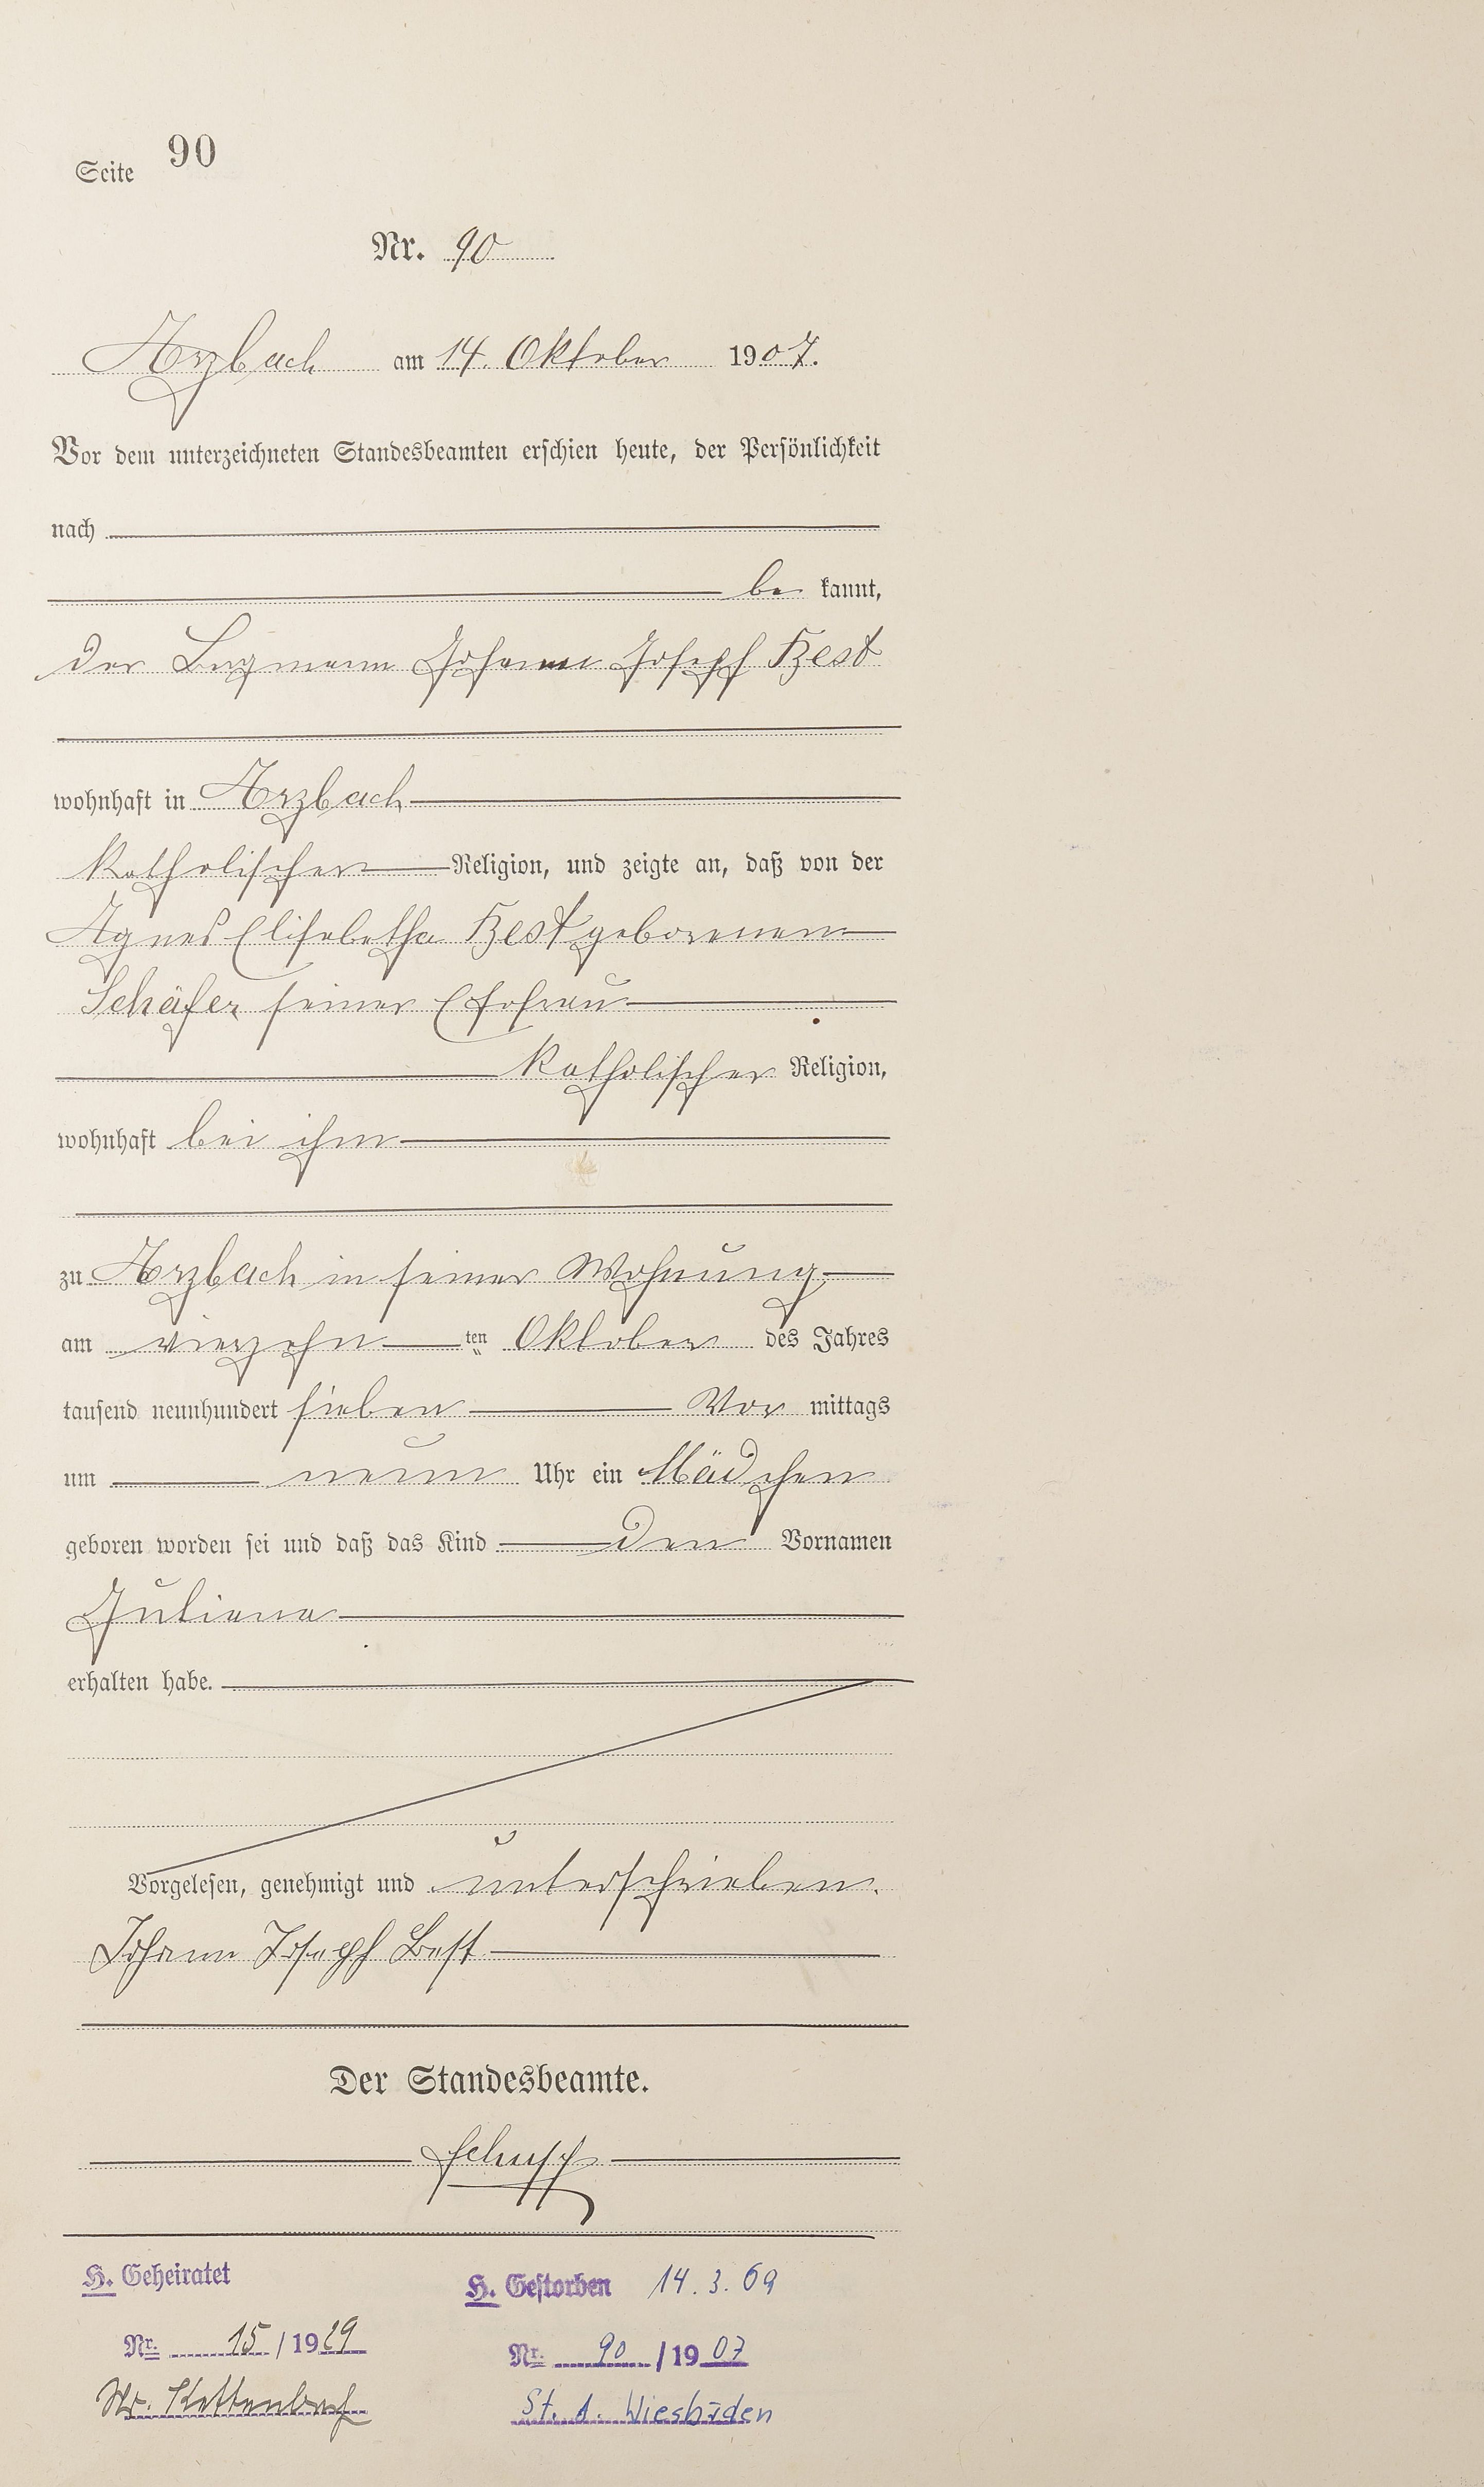 Seite 90
Nr. 90
Arzbach am 14. Oktober 1907.
Vor dem unterzeichneten Standesbeamten erschien heute, der Persönlichkeit
nach
be kannt,
der Johann Joseph Best
wohnhaft in Arzbach
katholischer Religion, und zeigte an, daß von der
Agnes Elisabetha Best geborenen
Schäfer seiner Ehefrau
katholischer Religion,
wohnhaft bei ihm
zu Arzbach in seiner Wohnung
am vierzehn ten Oktober des Jahres
tausend neunhundert sieben Vor mittags
um neun Uhr ein Mädchen
geboren worden sei und daß das Kind den Vornamen
Juliana
erhalten habe.
Vorgelesen, genehmigt und unterschrieben.
Johann Joseph Best
Der Standesbeamte.
Schupp
H. Geheiratet
Nr. 15 / 1929
Kettenbach
H. Gestorben 14.3.69
Nr. 90 / 1907
St. A. Wiesbaden